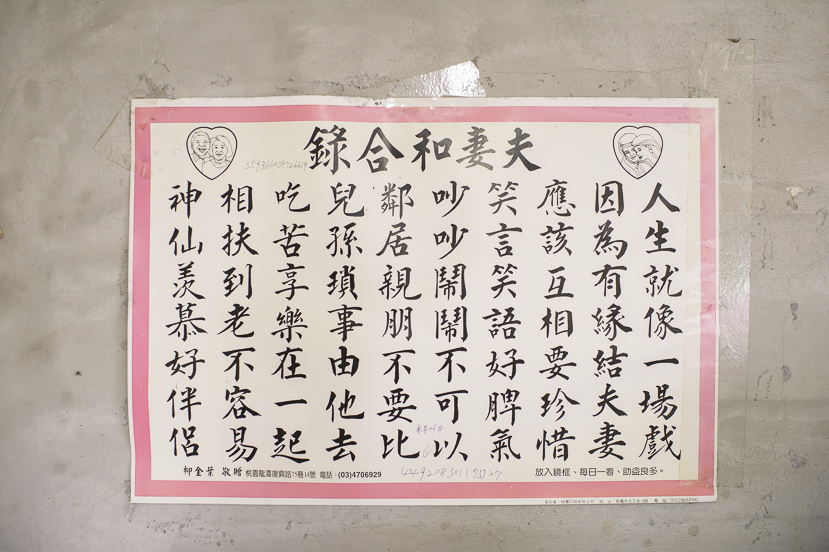 夫妻和合錄
人生就像一場戲
因為有緣結夫妻
應該互相要珍惜
笑言笑語好脾氣
吵吵鬧鬧不可以
鄰居親朋不要比
兒孫瑣事由他去
吃苦享樂在一起
相扶到老不容易
神仙羨慕好伴侶
放入鏡框、每日一看、助益良多。
柳金葉 敬贈 桃園龍潭復興路75巷14號 電話：(03)4706929